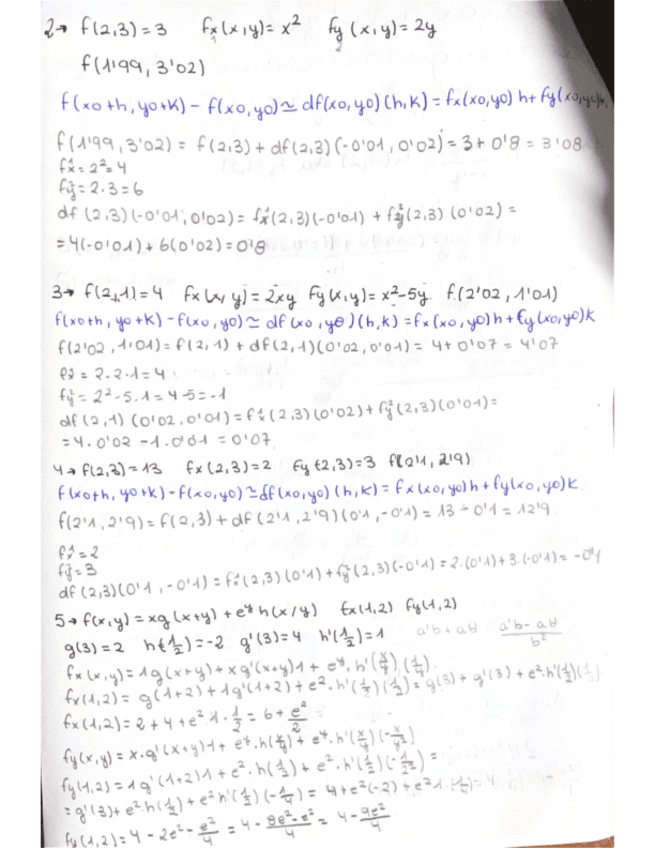 2→ f(2,3)=3 fx(x,y)=x² fy(x,y)=2y
f(1'99, 3'02)
f(xo+h, yo+k) - f(xo,yo) ≃ df(xo,yo)(h,k) = fx(xo,yo)h + fy(xo,yo)k
f(1'99, 3'02) = f(2,3) + df(2,3)(-0'01, 0'02) = 3+0'8 = 3'08
fx = 2² = 4
fy = 2·3 = 6
df(2,3)(-0'01, 0'02) = fx(2,3)(-0'01) + fy(2,3)(0'02) =
= 4(-0'01) + 6(0'02) = 0'8
3→ f(2,1)=4 fx(x,y)=2xy fy(x,y)=x²-5y f(2'02, 1'01)
f(xo+h, yo+k) - f(xo,yo) ≃ df(xo,yo)(h,k) = fx(xo,yo)h + fy(xo,yo)k
f(2'02, 1'01) = f(2,1) + df(2,1)(0'02, 0'01) = 4+0'07 = 4'07
fx = 2·2·1 = 4
fy = 2²-5·1 = 4-5 = -1
df(2,1)(0'02, 0'01) = fx(2,3)(0'02) + fy(2,3)(0'01) =
= 4·0'02 - 1·0'01 = 0'07
4→ f(2,3)=13 fx(2,3)=2 fy(2,3)=3 f(2'1, 2'9)
f(xo+h, yo+k) - f(xo,yo) ≃ df(xo,yo)(h,k) = fx(xo,yo)h + fy(xo,yo)k
f(2'1, 2'9) = f(2,3) + df(2'1, 2'9)(0'1, -0'1) = 13 - 0'1 = 12'9
fx = 2
fy = 3
df(2,3)(0'1, -0'1) = fx(2,3)(0'1) + fy(2,3)(-0'1) = 2·(0'1) + 3·(-0'1) = -0'1
5→ f(x,y) = xg(x+y) + e^y h(x/y) fx(1,2) fy(1,2)
g(3)=2 h(1/2)=-2 g'(3)=4 h'(1/2)=1 a'b+ab' a'b-ab'/b²
fx(x,y) = 1g(x+y) + xg'(x+y)1 + e^y·h'(x/y)(1/y)
fx(1,2) = g(1+2) + 1g'(1+2) + e²·h'(1/2)(1/2) = g(3) + g'(3) + e²·h'(1/2)(1/2)
fx(1,2) = 2+4+e²·1·1/2 = 6 + e²/2
fy(x,y) = x·g'(x+y)1 + e^y·h(x/y) + e^y·h'(x/y)(-x/y²)
fy(1,2) = 1g'(1+2)1 + e²·h(1/2) + e²·h'(1/2)(-1/2²) =
= g'(3) + e²·h(1/2) + e²h'(1/2)(-1/4) = 4+e²(-2)+e²1·(-1/4) = 4
fy(1,2) = 4 - 2e² - e²/4 = 4 - 8e²-e²/4 = 4 - 9e²/4